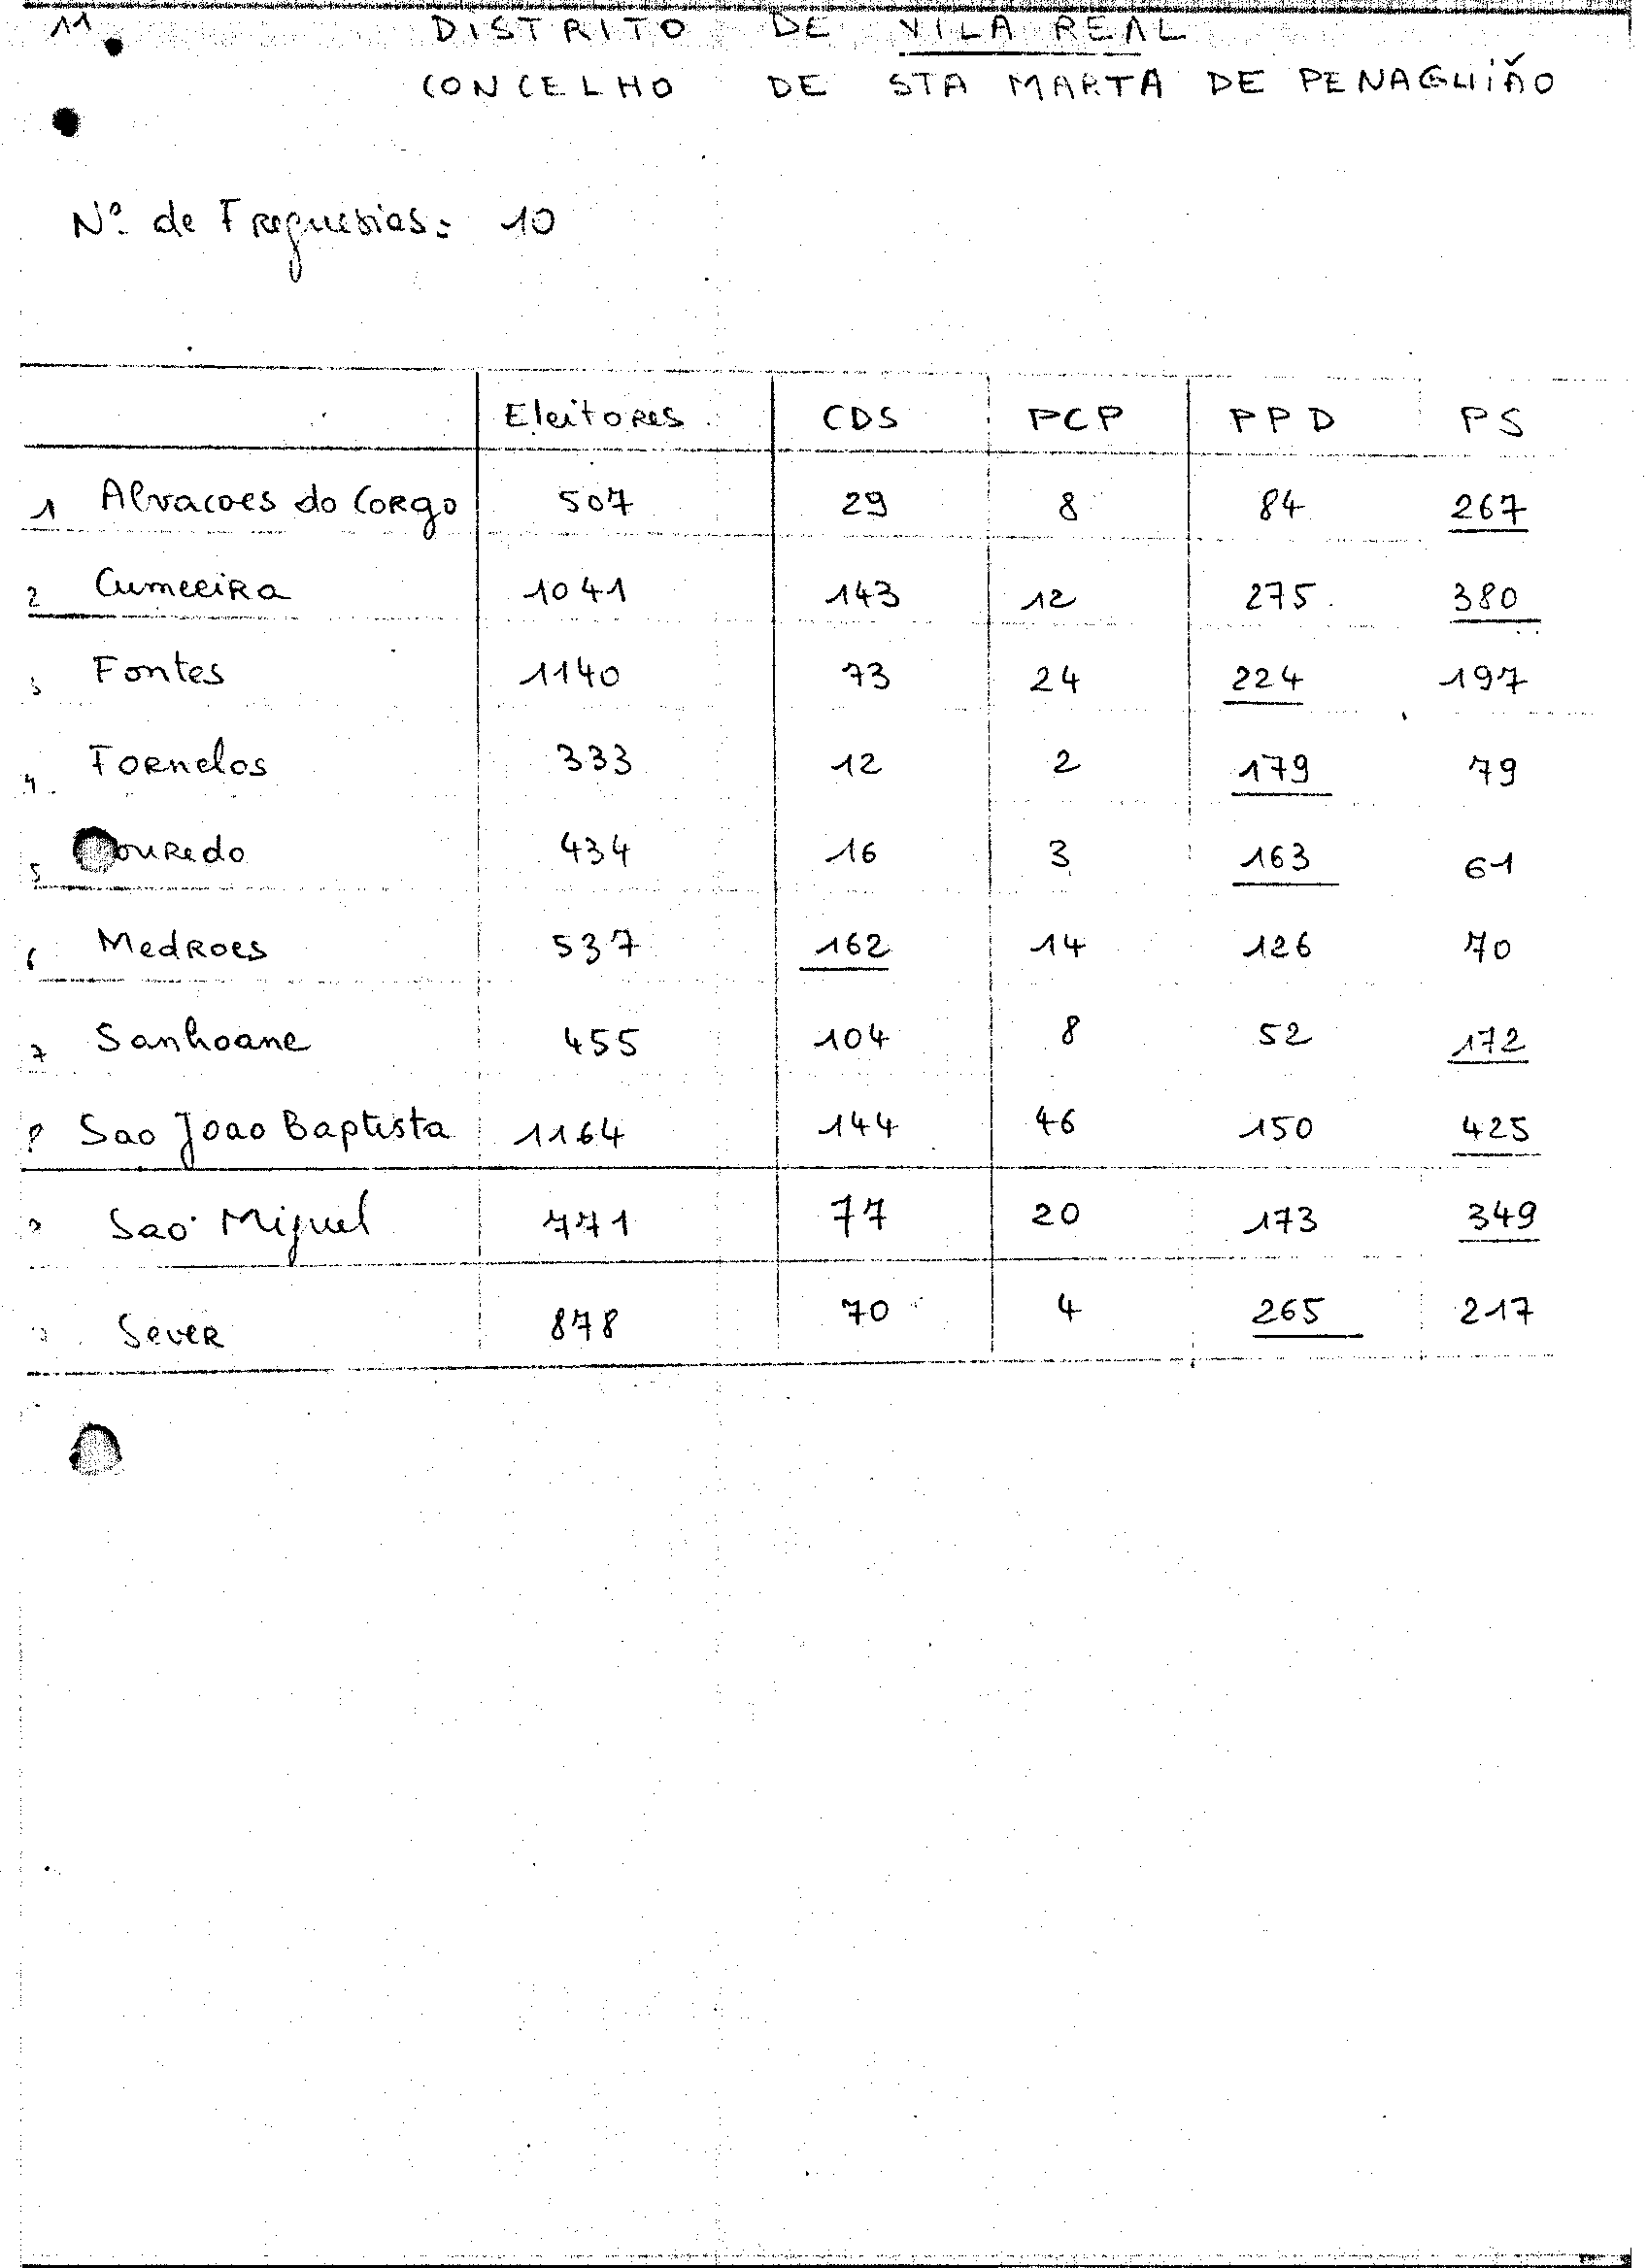 11
DISTRITO DE VILA REAL
CONCELHO DE STA MARTA DE PENAGUIÃO
Nº de Freguesias: 10
Eleitores CDS PCP PPD PS
1 Alvacoes do Corgo 507 29 8 84 267
2 Cumeeira 1041 143 12 275 380
3 Fontes 1140 73 24 224 197
4 Fornelos 333 12 2 179 79
5 ouredo 434 16 3 163 61
6 Medroes 537 162 14 126 70
7 Sanhoane 455 104 8 52 172
8 Sao Joao Baptista 1164 144 46 150 425
Sao Miguel 771 77 20 173 349
Sever 878 70 4 265 217